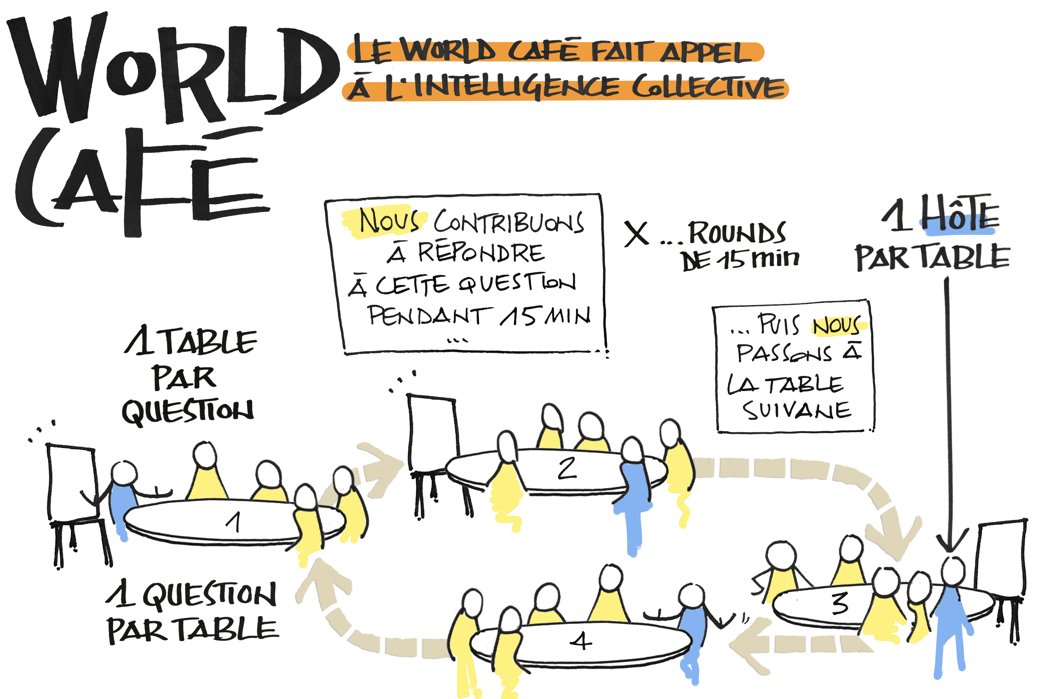 WORLD
CAFÉ
LE WORLD CAFÉ FAIT APPEL
À L'INTELLIGENCE COLLECTIVE
NOUS CONTRIBUONS
À RÉPONDRE
À CETTE QUESTION
PENDANT 15 MIN
...
X ... ROUNDS
DE 15 min
1 HÔTE
PAR TABLE
... PUIS NOUS
PASSONS À
LA TABLE
SUIVANE
1 TABLE
PAR
QUESTION
1
2
3
4
1 QUESTION
PAR TABLE